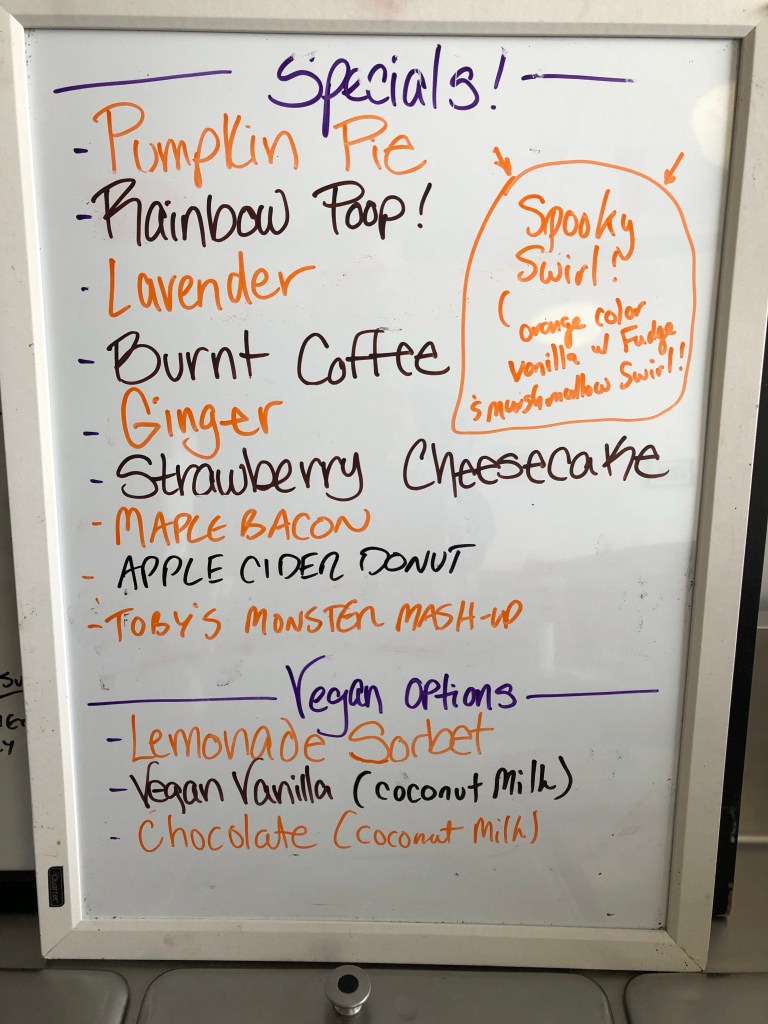 Specials!
- Pumpkin Pie
- Rainbow Poop!
- Lavender
- Burnt Coffee
- Ginger
- Strawberry Cheesecake
- MAPLE BACON
- APPLE CIDER DONUT
- TOBY'S MONSTER MASH-UP
Spooky
Swirl?
(orange color
vanilla w/ Fudge
& marshmallow Swirl!
Vegan Options
- Lemonade Sorbet
- Vegan Vanilla (coconut Milk)
- Chocolate (coconut Milk)